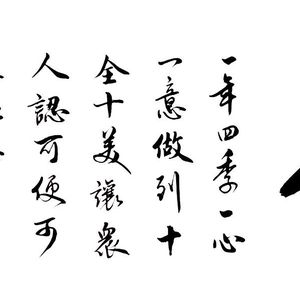 一年四季一心
一意做到十
全十美讓眾
人認可便可